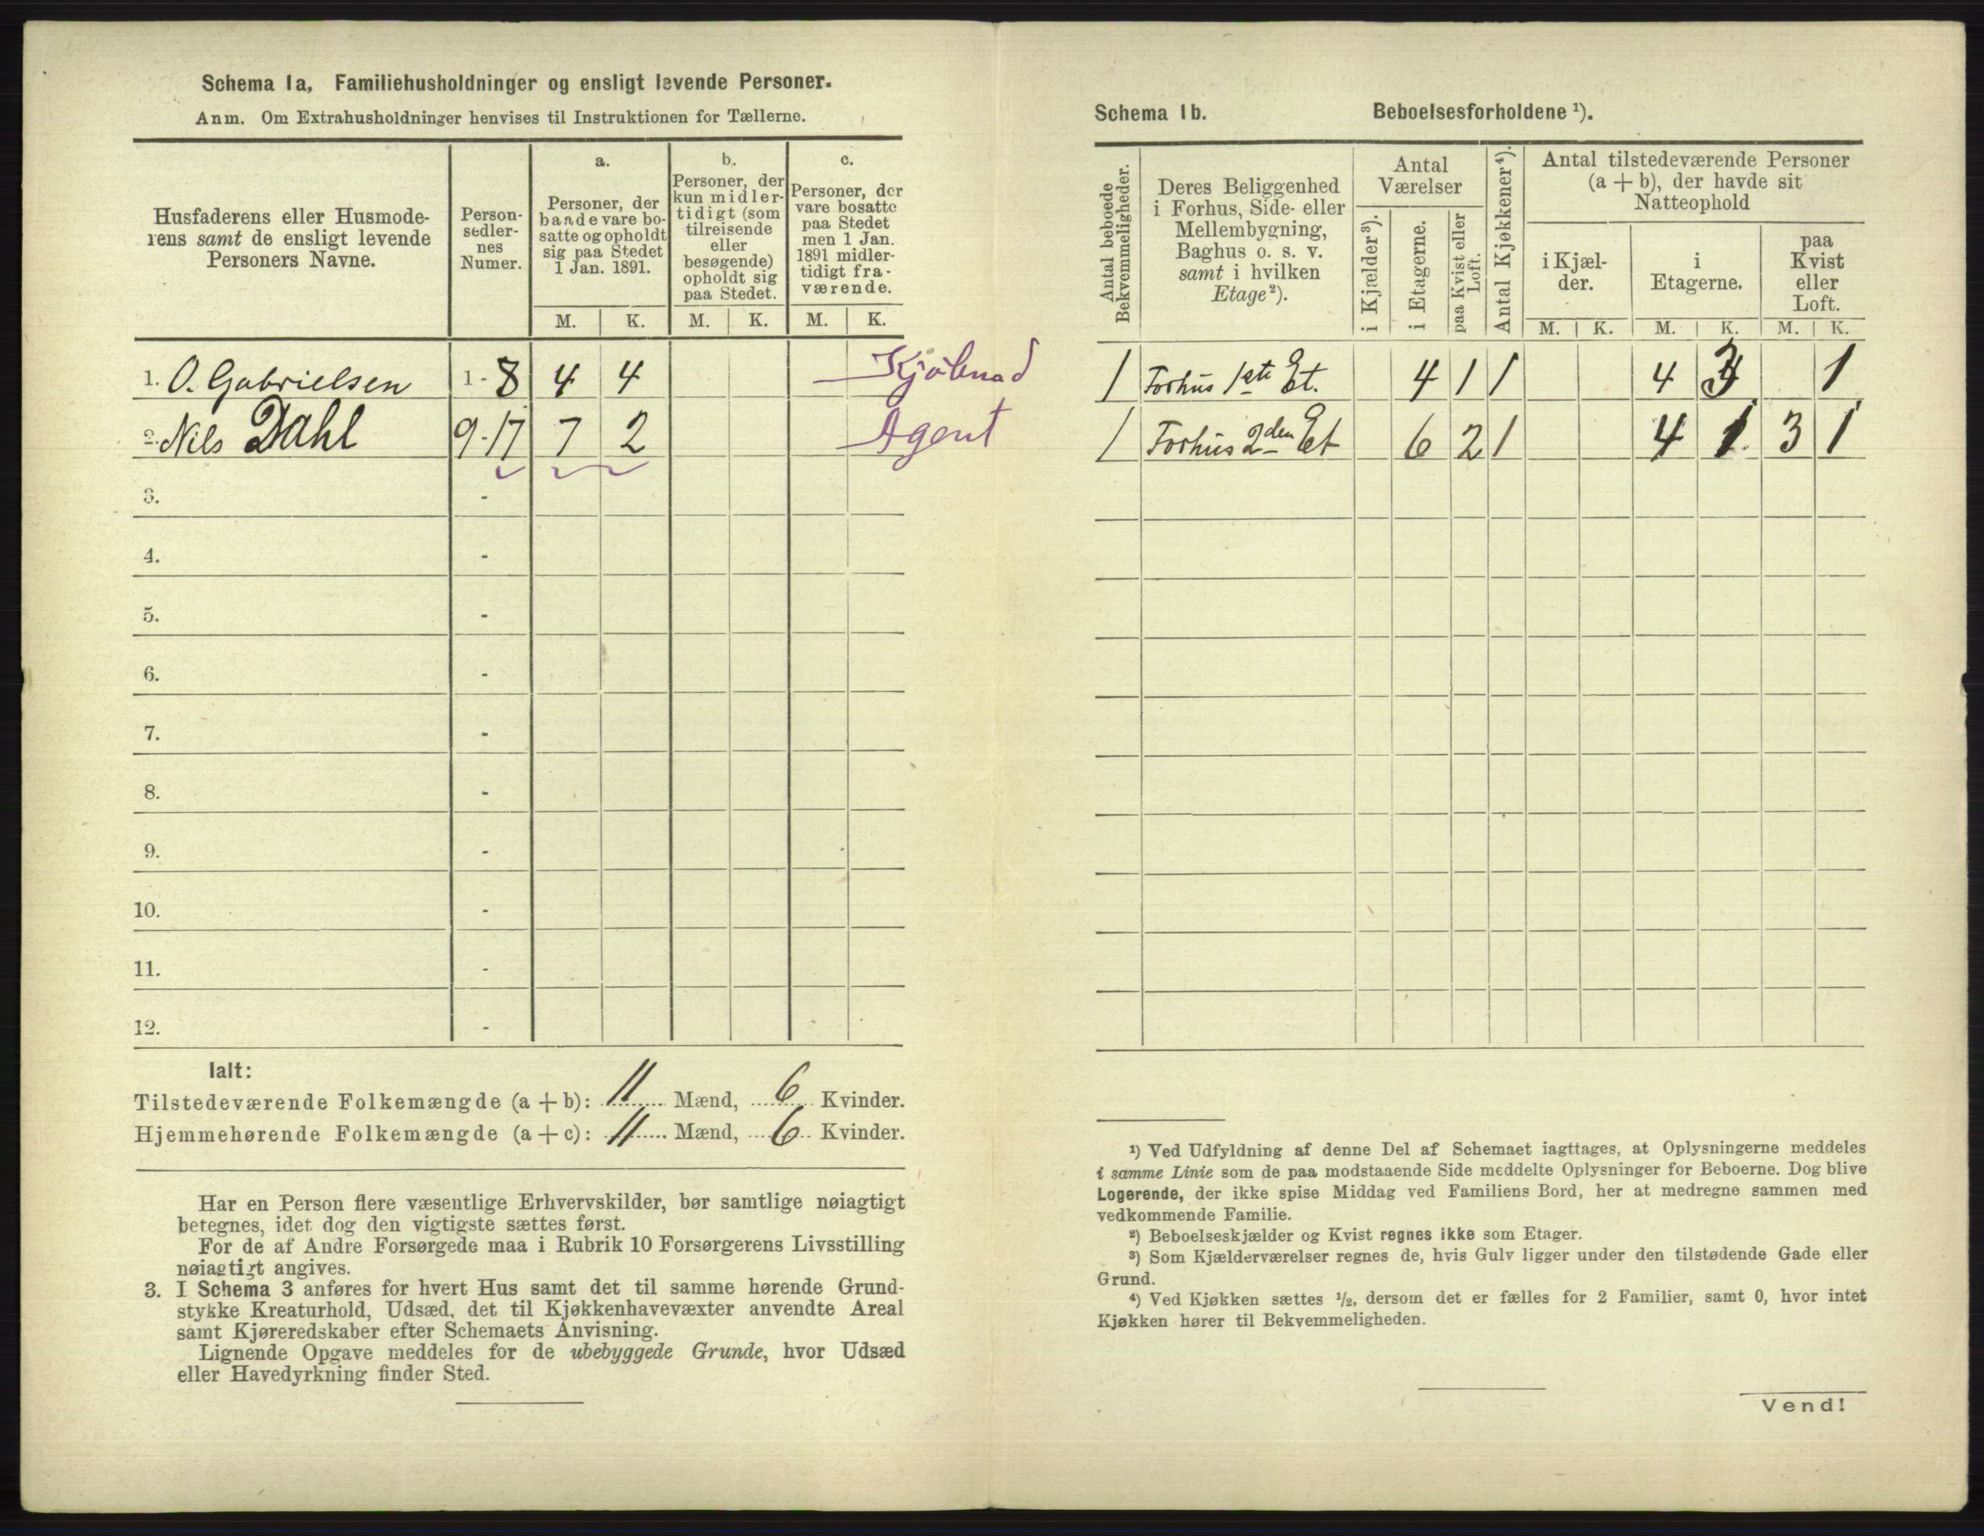 Schema 1a, Familiehusholdninger og ensligt levende Personer.
Anm. Om Extrahusholdninger henvises til Instruktionen for Tællerne.
Husfaderens eller Husmode-
rens samt de ensligt levende
Personers Navne.
Person-
sedler-
nes
Numer.
a.
Personer, der
baade vare bo-
satte og opholdt
sig paa Stedet
1 Jan. 1891.
M. K.
b.
Personer, der
kun midler-
tidigt (som
tilreisende
eller
besøgende)
opholdt sig
paa Stedet.
M. K.
c.
Personer, der
vare bosatte
paa Stedet
men 1 Jan.
1891 midler-
tidigt fra-
værende.
M. K.
1. O. Gabrielsen 1 - 8 4 4 Kjøbmad
2. Nils Dahl 9 - 17 7 2 Agent
3. -
4. -
5. -
6. -
7. -
8. -
9. -
10. -
11. -
12. -
Ialt:
Tilstedeværende Folkemængde (a + b): 11 Mænd, 6 Kvinder.
Hjemmehørende Folkemængde (a + c): 11 Mænd, 6 Kvinder.
Har en Person flere væsentlige Erhvervskilder, bør samtlige nøiagtigt
betegnes, idet dog den vigtigste sættes først.
For de af Andre Forsørgede maa i Rubrik 10 Forsørgerens Livsstilling
nøiagtigt angives.
3. I Schema 3 anføres for hvert Hus samt det til samme hørende Grund-
stykke Kreaturhold, Udsæd, det til Kjøkkenhavevæxter anvendte Areal
samt Kjøreredskaber efter Schemaets Anvisning.
Lignende Opgave meddeles for de ubebyggede Grunde, hvor Udsæd
eller Havedyrkning finder Sted.
Schema 1b. Beboelsesforholdene ¹).
Antal beboede
Bekvemmeligheder.
Deres Beliggenhed
i Forhus, Side- eller
Mellembygning,
Baghus o. s. v.
samt i hvilken
Etage²).
Antal
Værelser
i Kjælder³).
i Etagerne.
paa Kvist eller
Loft.
Antal Kjøkkener⁴).
Antal tilstedeværende Personer
(a + b), der havde sit
Natteophold
i Kjæl-
der.
M. K.
i
Etagerne.
M. K.
paa
Kvist
eller
Loft.
M. K.
1 Forhus 1ste Et. 4 1 1 4 3 1
1 Forhus 2den Et 6 2 1 4 1 3 1
¹) Ved Udfyldning af denne Del af Schemaet iagttages, at Oplysningerne meddeles
i samme Linie som de paa modstaaende Side meddelte Oplysninger for Beboerne. Dog blive
Logerende, der ikke spise Middag ved Familiens Bord, her at medregne sammen med
vedkommende Familie.
²) Beboelseskjælder og Kvist regnes ikke som Etager.
³) Som Kjælderværelser regnes de, hvis Gulv ligger under den tilstødende Gade eller
Grund.
⁴) Ved Kjøkken sættes ½, dersom det er fælles for 2 Familier, samt 0, hvor intet
Kjøkken hører til Bekvemmeligheden.
Vend!